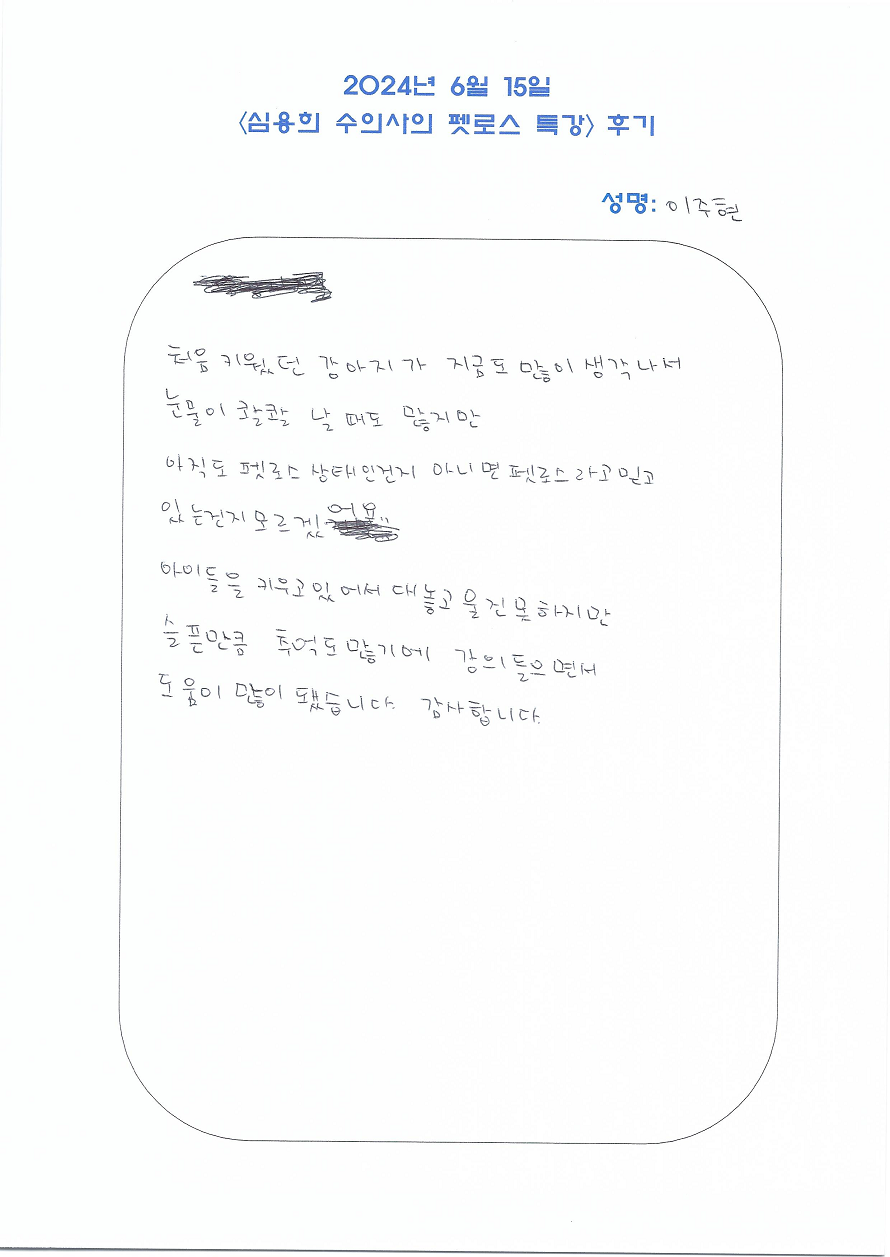 2024년 6월 15일
<심용희 수의사의 펫로스 특강> 후기
성명: 이주현
처음 키웠던 강아지가 지금도 많이 생각나서
눈물이 콸콸 날 때도 많지만
아직도 펫로스 상태인건지 아니면 펫로스라고 믿고
있는건지 모르겠어요..
아이들을 키우고있어서 대놓고 울진못하지만
슬픈만큼 추억도 많기에 강의들으면서
도움이 많이 됐습니다. 감사합니다.